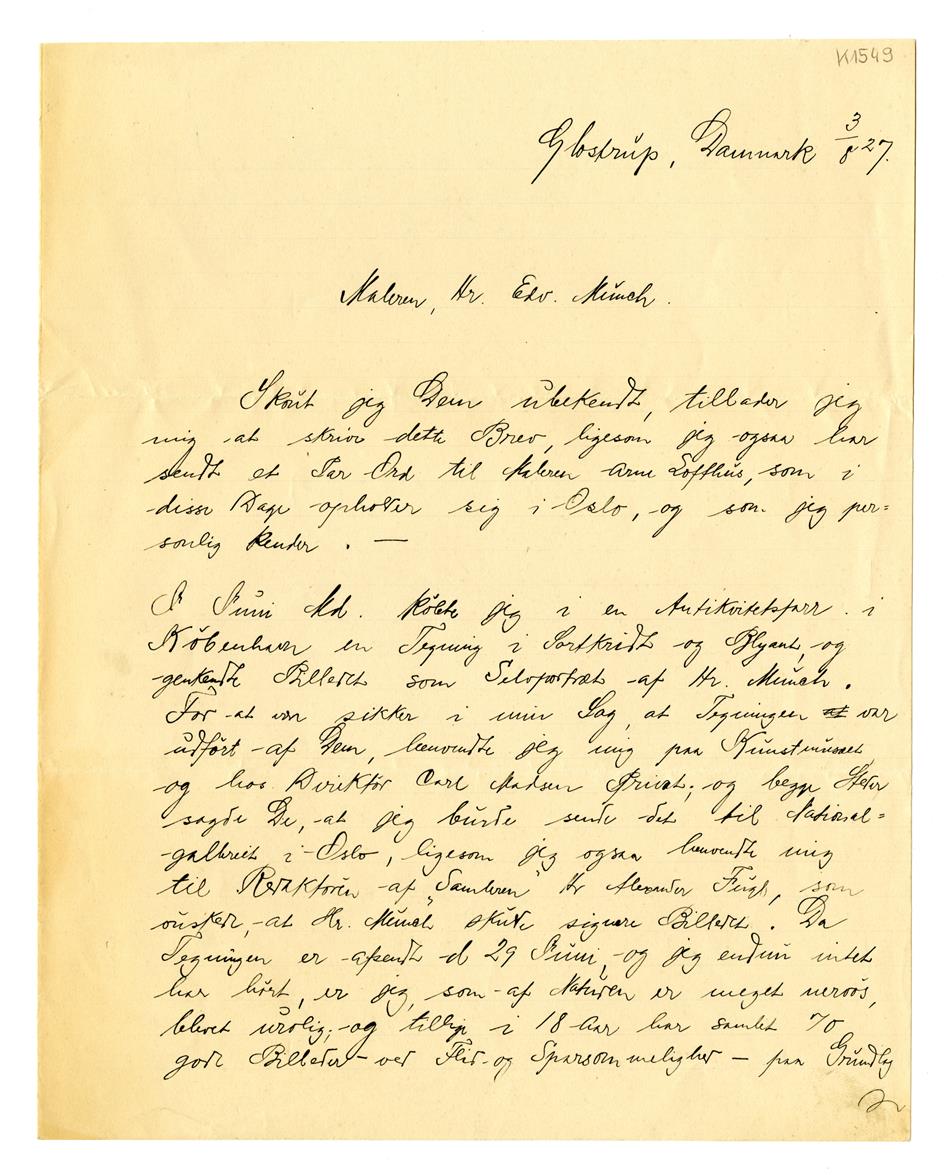 K1549
Glostrup, Danmark 3/8 27.
Maleren, Hr. Edv. Munch.
Skønt jeg Dem ubekendt, tillader jeg
mig at skrive dette Brev, ligesom jeg ogsaa har
sendt et Par Ord til Maleren Arne Lofthus, som i
disse Dage opholder sig i Oslo, og som jeg per=
sonlig kender. —
I Juni Md. købte jeg i en Antikvitetsforr. i
København en Tegning i Sortkridt og Blyant, og
genkendte Billedet som Selvportræt af Hr. Munch.
For at være sikker i min Sag, at Tegningen at var
udført af Dem, henvendte jeg mig paa Kunstmuseet
og hos Direktør Carl Madsen Privat; og begge Steder
sagde De, at jeg burde sende det til National=
galleriet i Oslo, ligesom jeg ogsaa henvendte mig
til Redaktøren af "Samleren" Hr Alexander, som
ønsked, at Hr. Munch skulde signere Billedet. Da
Tegningen er afsendt d 29 Juni, og jeg endnu intet
har hørt, er jeg, som af Naturen er meget nervøs,
blevet urolig; og tillige i 18 Aar har samlet 70
gode Billeder – ved Flid og Sparsommelighed – paa Grundlag